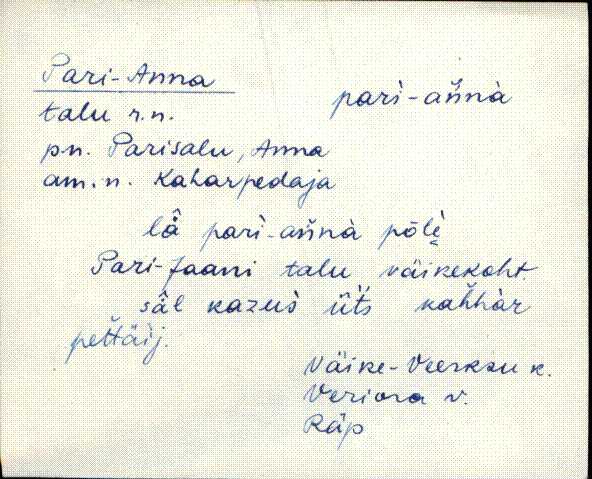 Pari-Anna
pari̬-ańnà
talu r.n.
pn. Parisalu, Anna
am.n. Kaharpedaja
lä̂ pari̬-ańnà põlè
Pari-Jaani talu väikekoht.
säl kazuś üt́s kah̆hàr
pet̆täìj.
Väike-Veerksu k.
Veriora v.
Räp